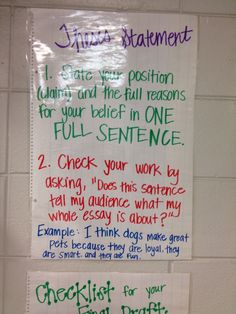 Thesis Statement
1. State your position
(claim) and the full reasons
for your belief in ONE
FULL SENTENCE.
2. Check your work by
asking, "Does this sentence
tell my audience what my
whole essay is about?"
Example: I think dogs make great
pets because they are loyal, they
are smart, and they are fun.
Checklist for your
Final Draft